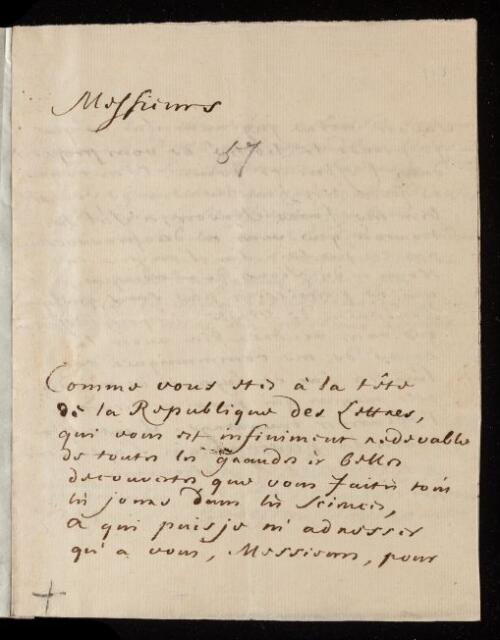 Messieurs
57
Comme vous etes à la tête
de la Republique des Lettres,
qui vous est infiniment redevable
de toutes les grandes et belles
decouvertes que vous faites tous
les jours dans les Sciences,
a qui puis je m'adresser
qu'a vous, Messieurs, pour